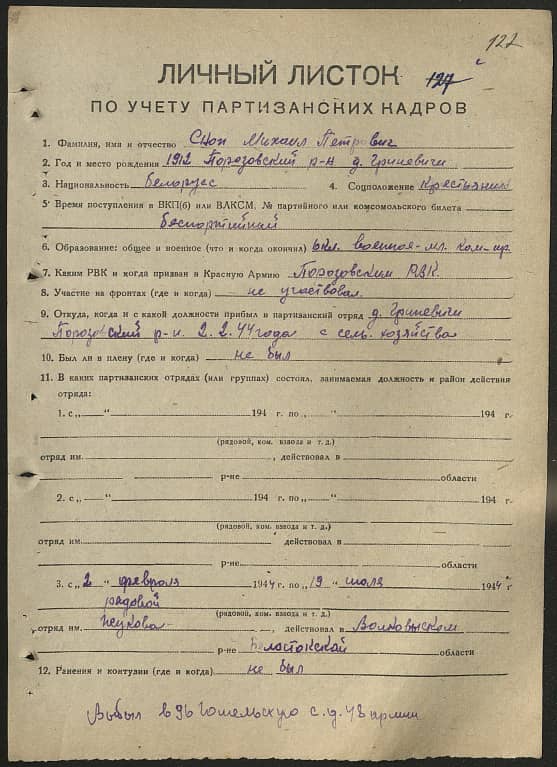 122
127
ЛИЧНЫЙ ЛИСТОК
ПО УЧЕТУ ПАРТИЗАНСКИХ КАДРОВ
1. Фамилия, имя и отчество Сноп Михаил Петрович
2. Год и место рождения 1912 Порозовский р-н д. Гриневичи
3. Национальность белорус 4. Соцположение Крестьянин
5. Время поступления в ВКП(б) или ВЛКСМ, № партийного или комсомольского билета
беспартийный
6. Образование: общее и военное (что и когда окончил) 6кл. военное-мл. ком-ир
7. Каким РВК и когда призван в Красную Армию Порозовским РВК.
8. Участие на фронтах (где и когда) не участвовал
9. Откуда, когда и с какой должности прибыл в партизанский отряд д. Гриневичи
Порозовский р-н. 2.2.44 года с сель. хозяйства
10. Был ли в плену (где и когда) не был
11. В каких партизанских отрядах (или группах) состоял, занимаемая должность и район действия
отряда:
1. с „ “ 194 г. по „ “ 194 г.
(рядовой, ком. взвода и т. д.)
отряд им. , действовал в
р-не области
2. с „ “ 194 г. по „ “ 194 г.
(рядовой, ком. взвода и т. д.)
отряд им. действовал в
р-не области
3. с „2“ февраля 1944 г. по „19“ июля 1944 г
рядовой
(рядовой, ком. взвода и т. д.)
отряд им. Жукова , действовал в Волковыском
р-не Белостокской области
12. Ранения и контузии (где и когда) не был
Выбыл в 96 Гомельскую с.д. 48 армии